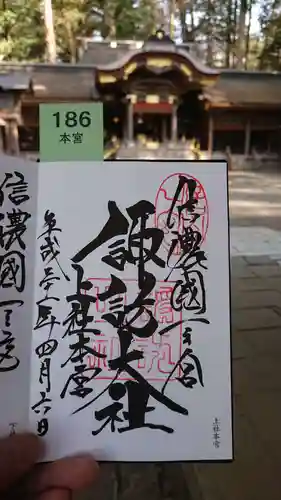 186
本宮
信濃國一之宮
諏訪大社
上社本宮
平成三十一年四月六日
上社本宮
信濃國一之宮